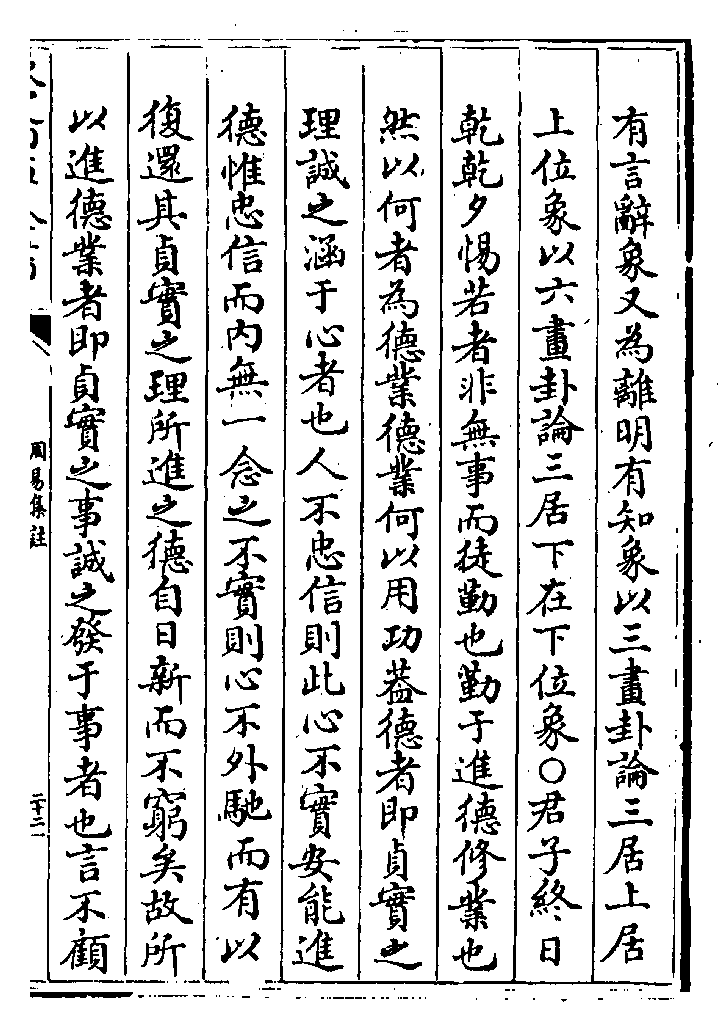 有言辭象又為離明有知象以三畫卦論三居上居
上位象以六畫卦論三居下在下位象○君子終日
乾乾夕惕若者非無事而徒勤也勤于進德修業也
然以何者為德業德業何以用功葢德者即貞實之
理誠之涵于心者也人不忠信則此心不實安能進
德惟忠信而內無一念之不實則心不外馳而有以
復還其貞實之理所進之德自日新而不窮矣故所
以進德業者即貞實之事誠之發于事者也言不顧
周易集註
二十二